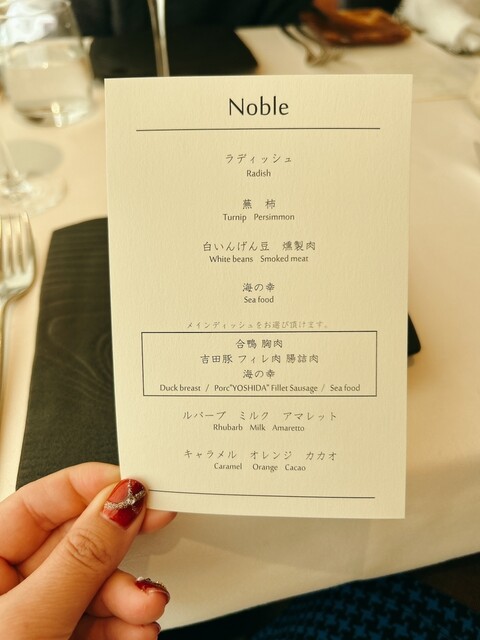 Noble
ラディッシュ
Radish
蕪 柿
Turnip Persimmon
白いんげん豆 燻製肉
White beans Smoked meat
海の幸
Sea food
メインディッシュをお選び頂けます。
合鴨 胸肉
吉田豚 フィレ肉 腸詰肉
海の幸
Duck breast / Porc"YOSHIDA" Fillet Sausage / Sea food
ルバーブ ミルク アマレット
Rhubarb Milk Amaretto
キャラメル オレンジ カカオ
Caramel Orange Cacao